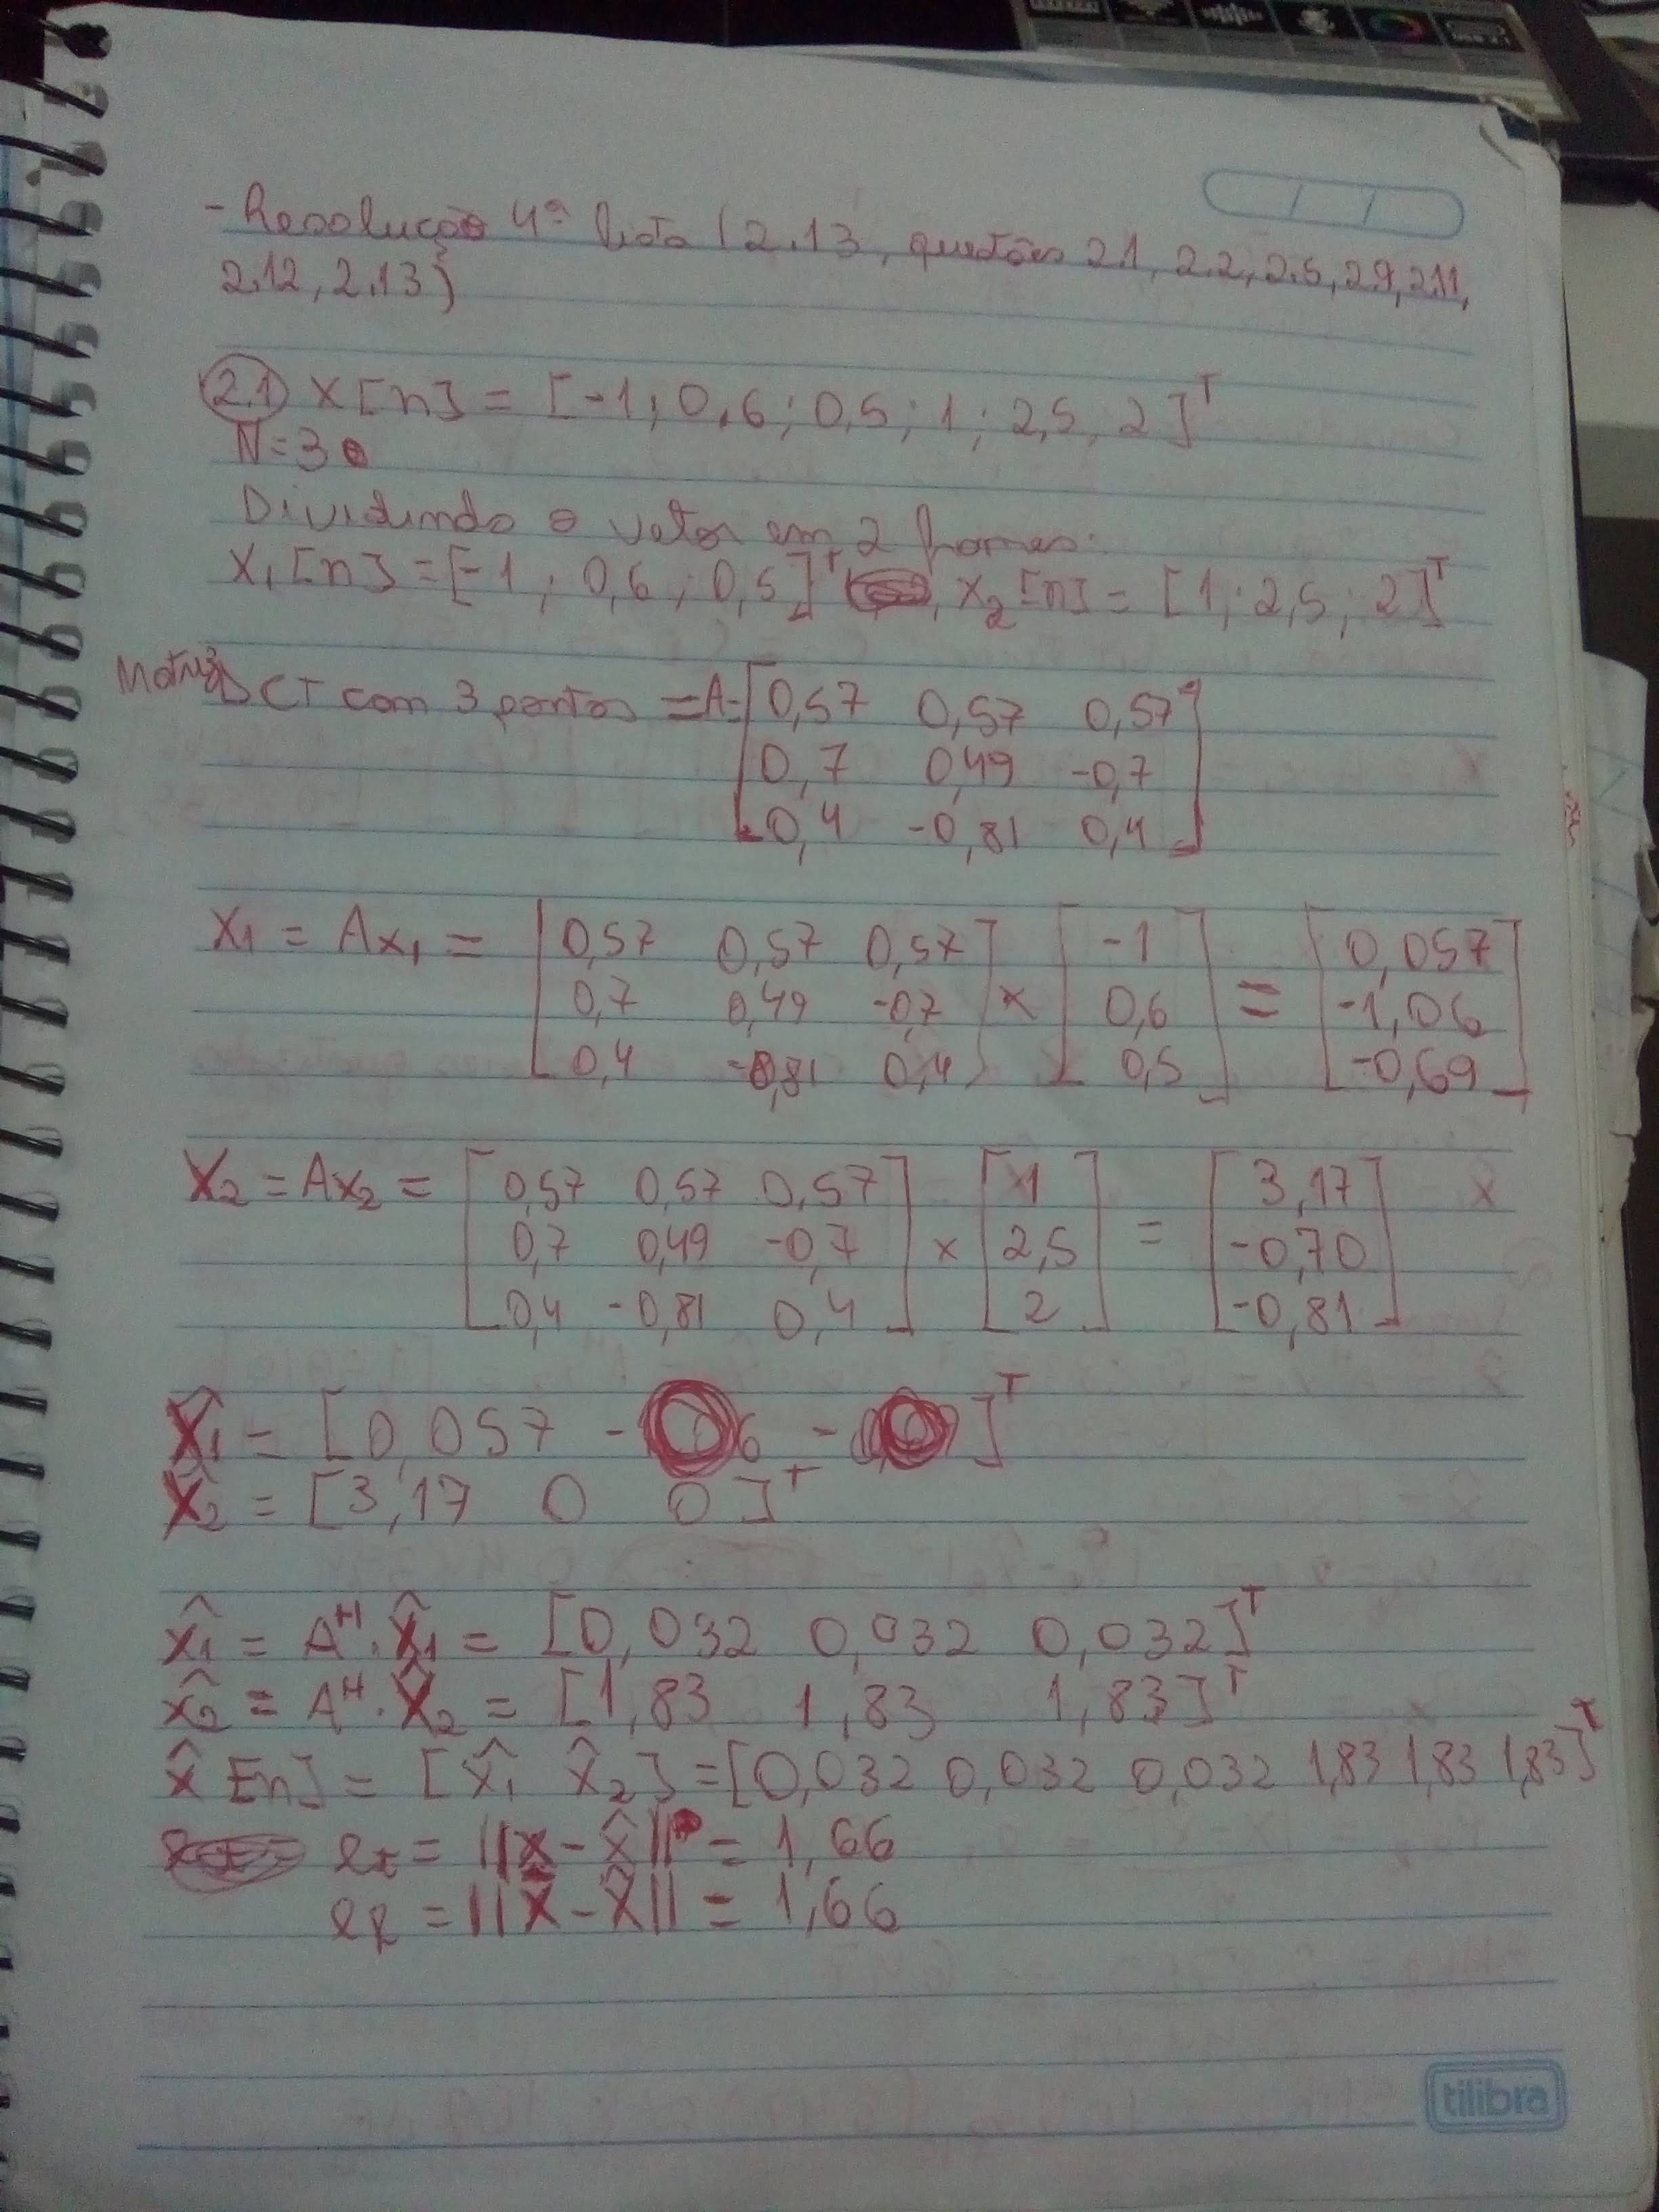 - Resolução 4ª lista (2.13, questões 2.1, 2.2, 2.5, 2.9, 2.11,
2.12, 2.13)
2.1 X[n] = [-1; 0,6; 0,5; 1; 2,5, 2]ᵀ
N=3
Dividindo o vetor em 2 frames:
X₁[n] = [-1; 0,6; 0,5]ᵀ, X₂[n] = [1; 2,5; 2]ᵀ
Matriz DCT com 3 pontos = A = [0,57 0,57 0,57
0,7 0,49 -0,7
0,4 -0,81 0,4]
X₁ = Ax₁ = [0,57 0,57 0,57] [-1] [0,057]
0,7 0,49 -0,7 x 0,6 = -1,06
0,4 -0,81 0,4 0,5 -0,69
X₂ = Ax₂ = [0,57 0,57 0,57] [1] [3,17]
0,7 0,49 -0,7 x 2,5 = -0,70
0,4 -0,81 0,4 2 -0,81
X̂₁ = [0,057 - 0 - 0]ᵀ
X̂₂ = [3,17 0 0]ᵀ
x̂₁ = Aᴴ.X̂₁ = [0,032 0,032 0,032]ᵀ
x̂₂ = Aᴴ.X̂₂ = [1,83 1,83 1,83]ᵀ
x̂[n] = [x̂₁ x̂₂] = [0,032 0,032 0,032 1,83 1,83 1,83]ᵀ
et = ||x - x̂|| = 1,66
ef = ||X - X̂|| = 1,66
tilibra